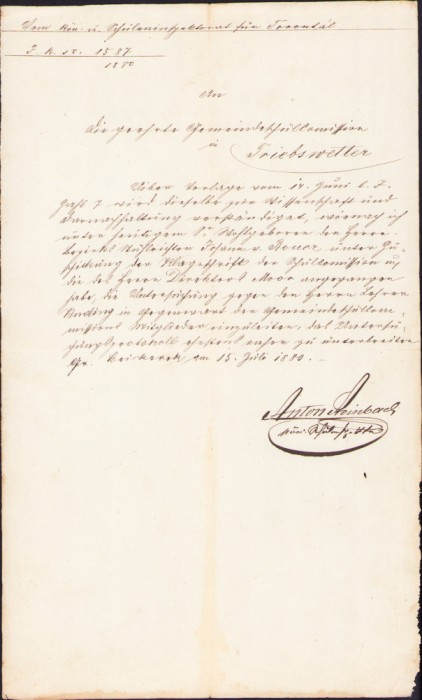 Vom kön. u. Schuleninspektorat für Torontál
Z. k. sr. 1587
1880
An
die geehrte Gemeindeschulkomission
in Triebswetter
Ueber Vorlage vom 14. Juni l. J.
Zahl 7 wird dieselbe zur Wissenschaft und
Darnachhaltung verständigt, wienach ich
unter heutigem Sr Wohlgeboren den Herrn
Bezirks Stuhlrichter Johann v. unter Zu-
schickung der Klageschrift der Schulkomission u.
die des Herrn Direktors Moor angegangen
habe, die Untersuchung gegen den Herrn Lehrer
Anding in Gegenwart der Gemeindeschulkom-
missions Mitglieder einzuleiten, das Untersu-
chungsprotokoll ehestens anher zu unterbreiten
Gr. Becskerek, am 15. Juli 1880.
Anton Steinbach
kön.